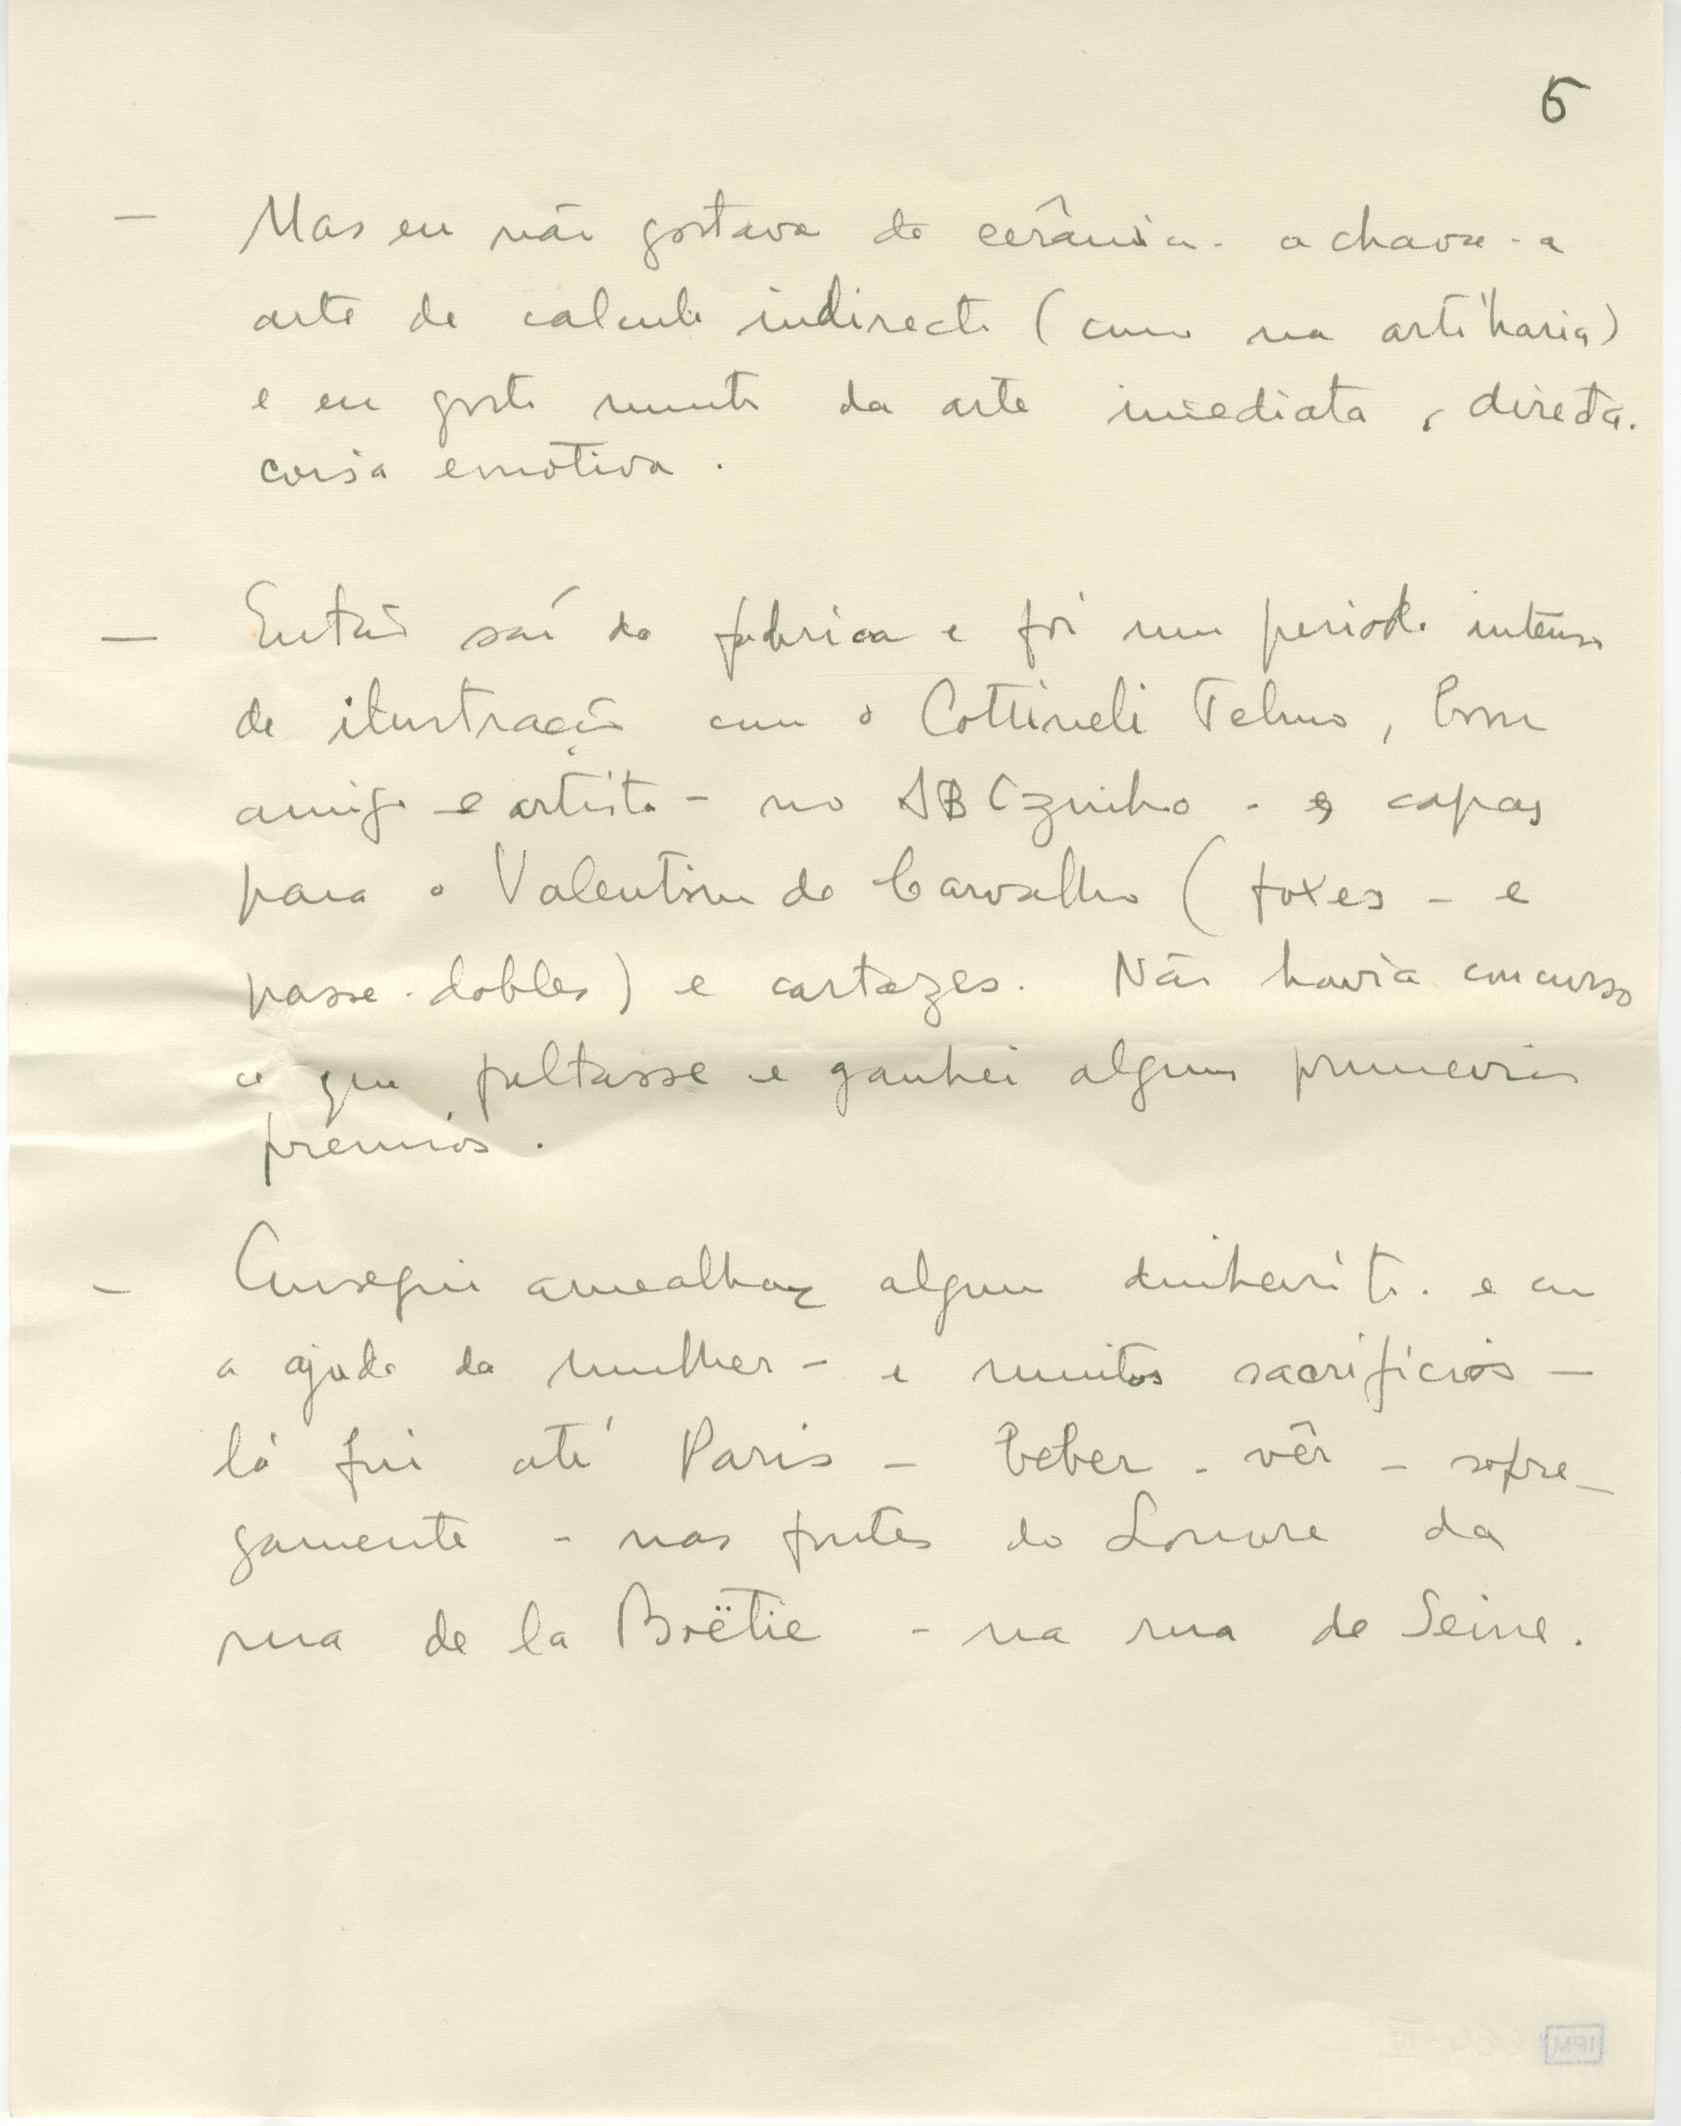 5
— Mas eu não gostava de cerâmica - achava-a
arte de calculo indirecto (como na artilharia)
e eu gosto muito da arte imediata, directa.
coisa emotiva.
— Então saí da fabrica e foi um periodo intenso
de ilustração com o Cottineli Telmo, bom
amigo e artista - no ABCzinho - e capas
para o Valentim de Carvalho (foxes - e
passe-dobles) e cartazes. Não havia concurso
a que faltasse e ganhei alguns primeiros
prémios.
— Consegui amealhar algum dinheirito. e com
a ajuda da mulher - e muitos sacrifícios —
lá fui até Paris - beber - vêr - sofre-
gamente - nas fontes do Louvre da
rua de la Boëtie - na rua de Seine.
IPM